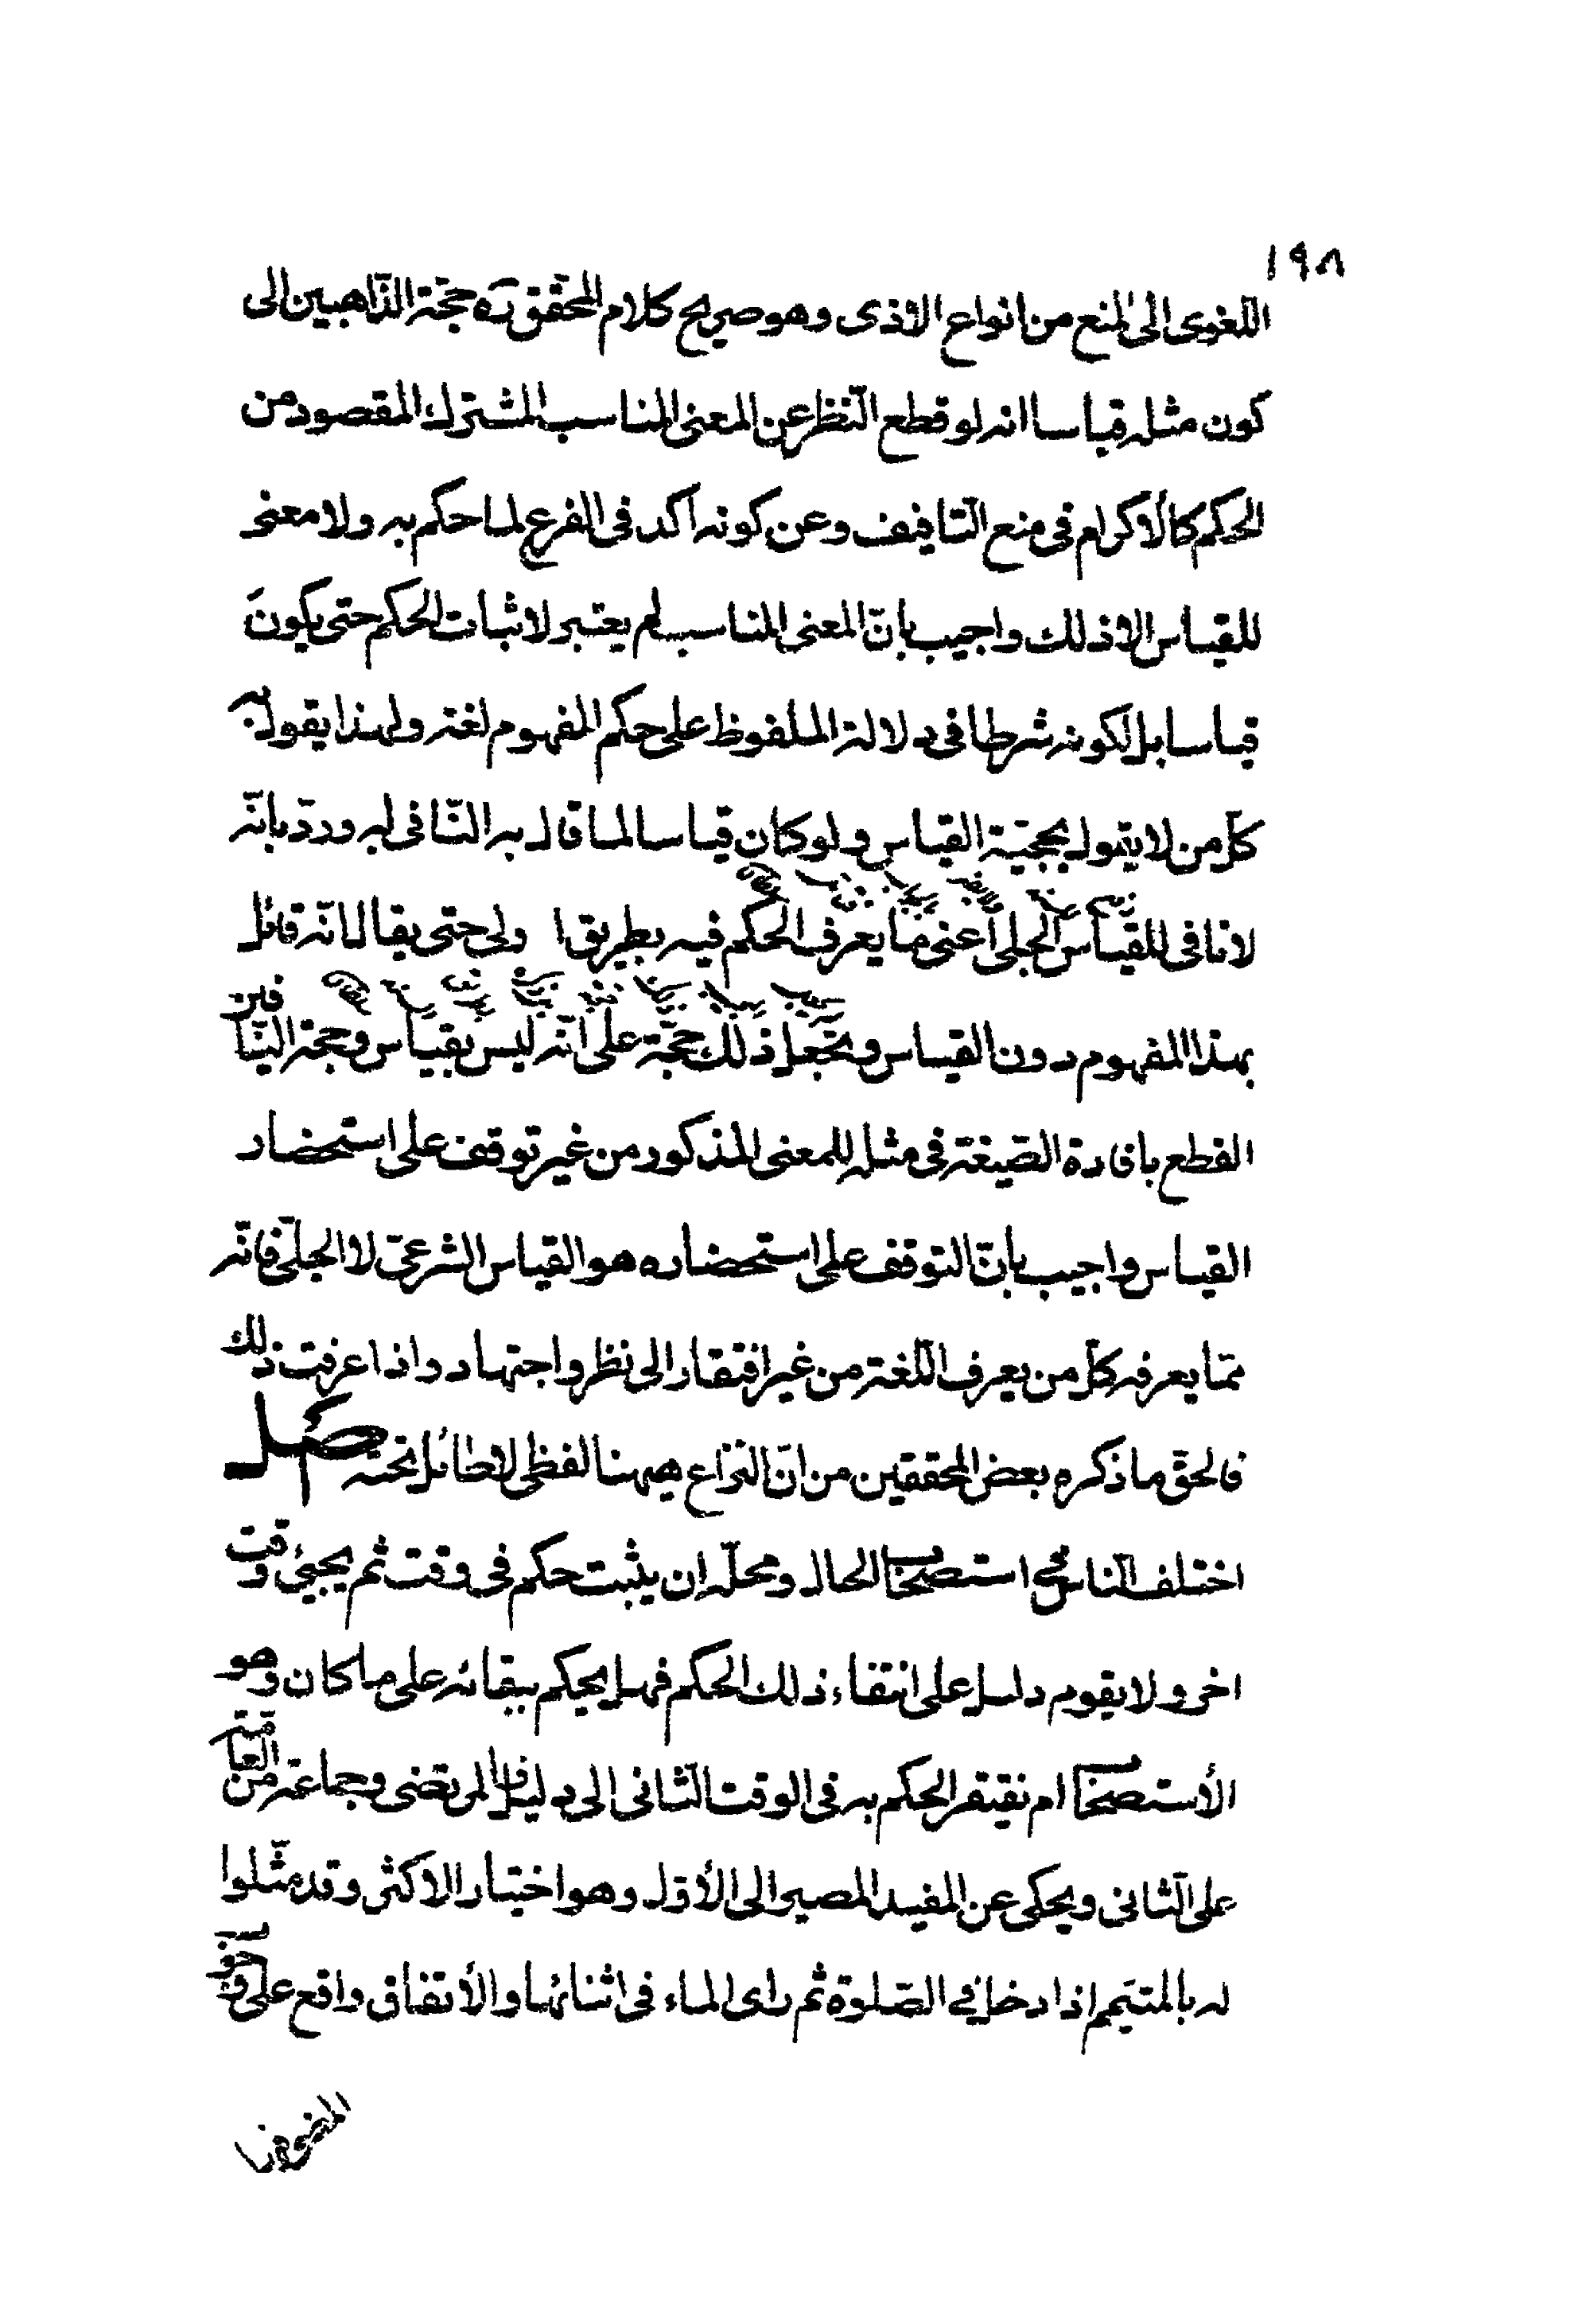 ١٩٨
اللغوى الى المنع من انواع الاذى وهو صريح كلام المحقق ره حجة الذاهبين الى
كون مثله قياسا انه لو قطع النظر عن المعنى المناسب المشترك المقصود من
الحكم كالأكرام فى منع التافيف وعن كونه اكد فى الفرع لما حكم به ولا معنى
للقياس الا ذلك واجيب بانّ المعنى المناسب لم يعتبر لاثبات الحكم حتى يكونَ
قياسا بل لكونه شرطا فى دلالة الملفوظ على حكم المفهوم لغة ولهذا يقول به
كلّ من لا يقول بحجيّة القياس ولو كان قياسا لما قال به النّافى له وردّ بانّه
لا نافى للقياس الجلى اعنى ما يعرف الحكم فيه بطريق ا ولى حتى يقال انّه قائل
بهذا المفهوم دون القياس ويجعل ذلك حجّة على انّه ليس بقياس وحجة النّافين
القطع بافادة الصّيغة فى مثله للمعنى المذكور من غير توقف على استحضار
القياس واجيب بانّ التوقف على استحضاره هو القياس الشرعىّ لا الجلّى فانّه
ممّا يعرفه كلّ من يعرف اللّغة من غير افتقار الى نظر واجتهاد واذا عرفت ذلك
فالحقّ ما ذكره بعض المحققين من انّ النزاع ههنا لفظى لا طائل تحته اصل
اختلف النّاس فى استصحاب الحال ومحلّه ان يثبت حكم فى وقت ثم يجيئ وقت
اخر ولا يقوم دليل على انتفاء ذلك الحكم فهل يحكم ببقائه على ما كان وهو
الأستصحاب ام نفتقر الحكم به فى الوقت الثّانى الى دليل فالمرتضى وجماعة من العامّة
على الثّانى ويحكى عن المفيد المصير الى الأوّل وهو اختيار الاكثر وقد مثّلوا
له بالمتيّمم اذا دخل فى الصّلوة ثم راى الماء فى اثنائها والأتفاق واقع على وجوب